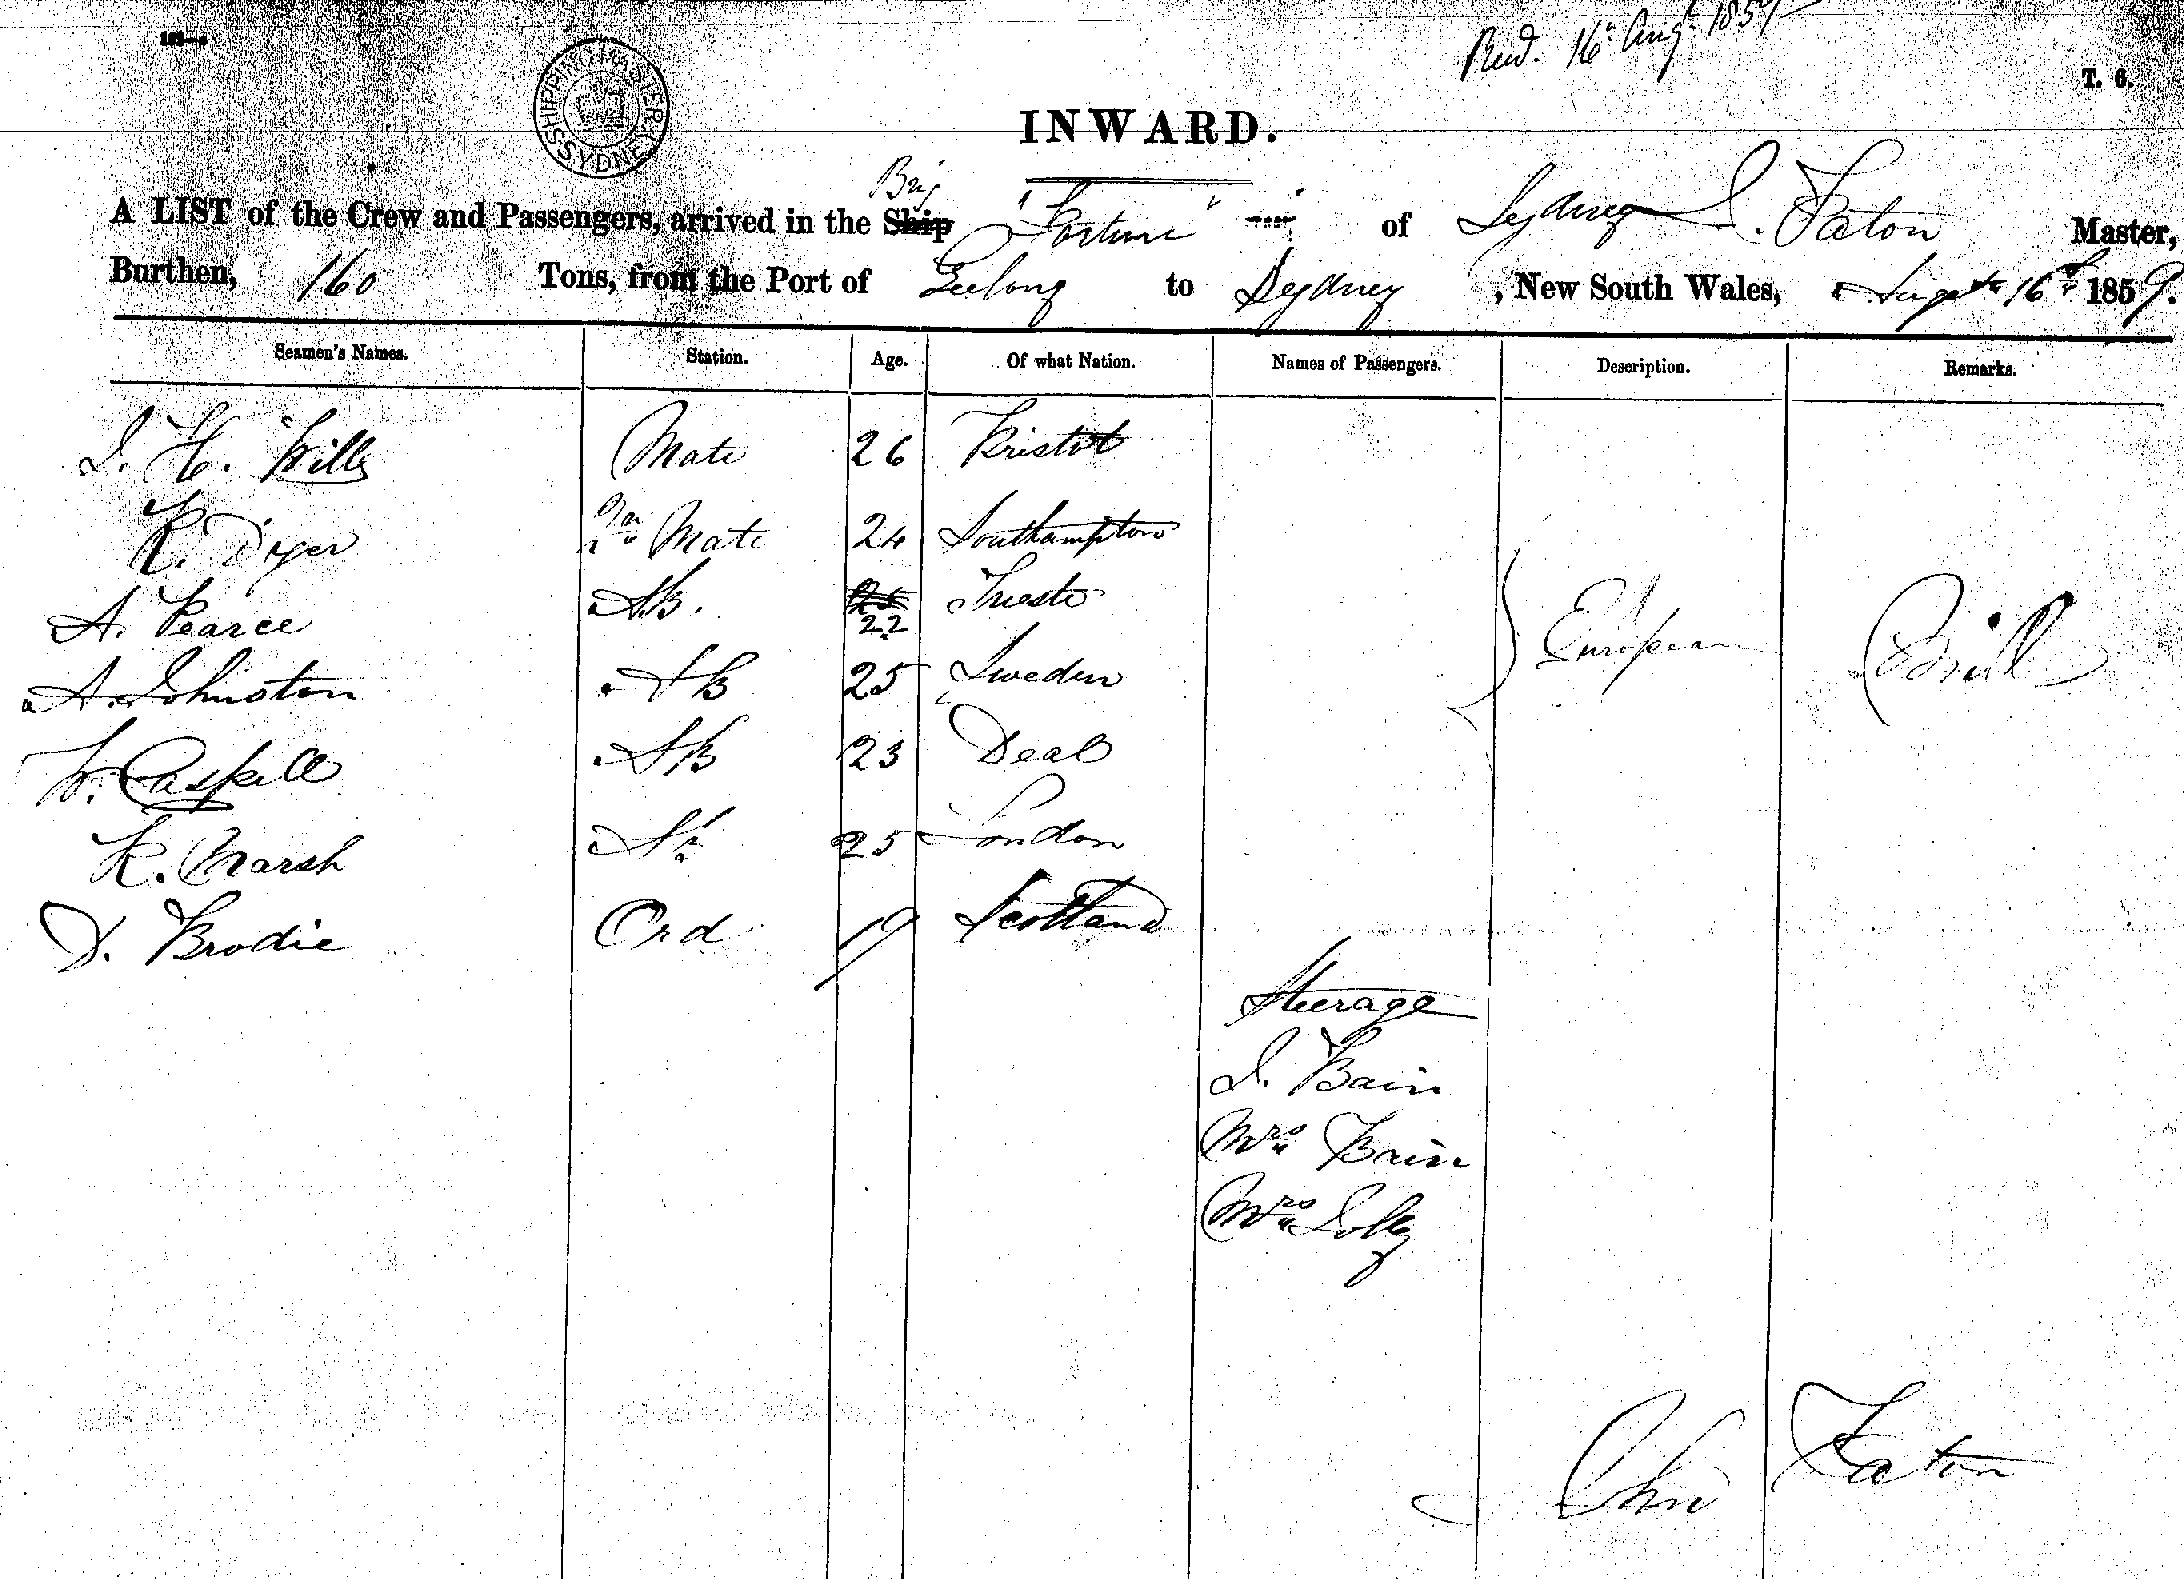 Recd. 16 Augt 1859
T. 6.
SHIPPING MASTER SYDNEY
INWARD.
Brig
A LIST of the Crew and Passengers, arrived in the Ship "Fortune" of Sydney J. Eaton Master,
Burthen, 160 Tons, from the Port of Geelong to Sydney, New South Wales, Augst 16th 1859.
Seamen's Names. Station. Age. Of what Nation. Names of Passengers. Description. Remarks.
J. H. Wills Mate 26 Bristol
R. Dyer Mate 24 Southampton
A. Pearce AB. 22 Trieste
A. Johnston AB 25 Sweden
European
W. Caskell AB 23 Deal
R. Marsh 25 London
D. Brodie Ord 19 Scotland
Steerage
J. Bain
Mrs Bain
Mrs Solly
John Eaton